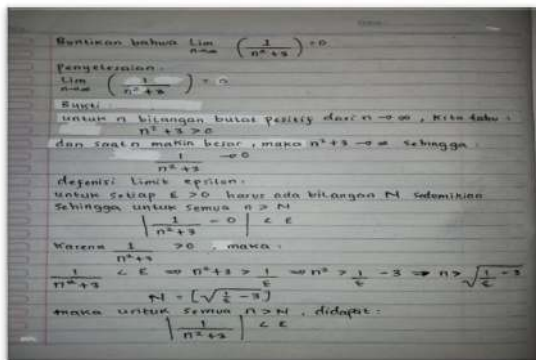 Buktikan bahwa Lim n→∞ (1/(n²+3)) = 0
Penyelesaian.
Lim n→∞ (1/(n²+3)) = 0
Bukti
untuk n bilangan bulat positif dari n → ∞, kita tahu :
n² + 3 > 0
dan saat n makin besar, maka n²+3 → ∞ sehingga :
1/(n²+3) → 0
defenisi limit epsilon.
untuk setiap ε > 0 harus ada bilangan N sedemikian
sehingga untuk semua n > N
|1/(n²+3) - 0| < ε
Karena 1/(n²+3) > 0, maka :
1/(n²+3) < ε ⇒ n²+3 > 1/ε ⇒ n² > 1/ε - 3 ⇒ n > √(1/ε - 3)
N = [√(1/ε - 3)]
maka untuk semua n > N, didapat :
|1/(n²+3)| < ε